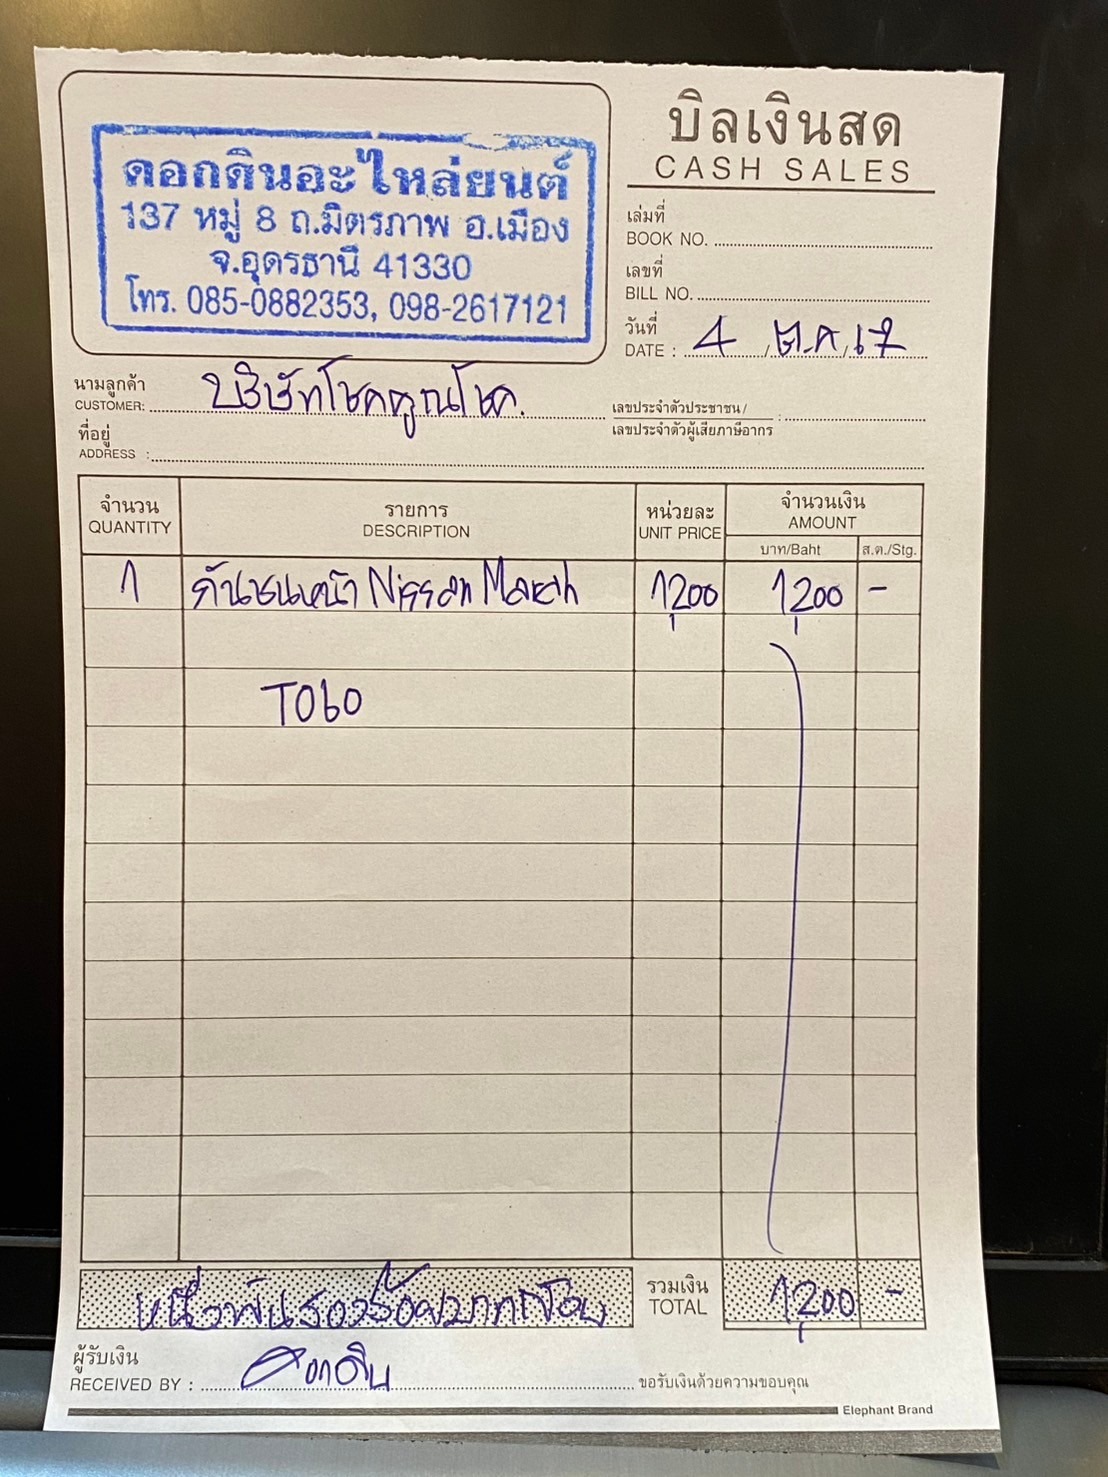 บิลเงินสด
CASH SALES
ดอกดินอะไหล่ยนต์
137 หมู่ 8 ถ.มิตรภาพ อ.เมือง
จ.อุดรธานี 41330
โทร. 085-0882353, 098-2617121
เล่มที่
BOOK NO.
เลขที่
BILL NO.
วันที่
DATE : 4 / ต.ค / 67
นามลูกค้า
CUSTOMER: บริษัทโชคคูณโชค.
เลขประจำตัวประชาชน /
เลขประจำตัวผู้เสียภาษีอากร :
ที่อยู่
ADDRESS :
จำนวน รายการ หน่วยละ จำนวนเงิน
QUANTITY DESCRIPTION UNIT PRICE AMOUNT
บาท/Baht ส.ต./Stg.
1 กันชนหน้า Nissan March 1,200 1,200 -
TOBO
หนึ่งพันสองร้อยบาทถ้วน รวมเงิน 1,200 -
TOTAL
ผู้รับเงิน
RECEIVED BY : ดอกดิน ขอรับเงินด้วยความขอบคุณ
Elephant Brand